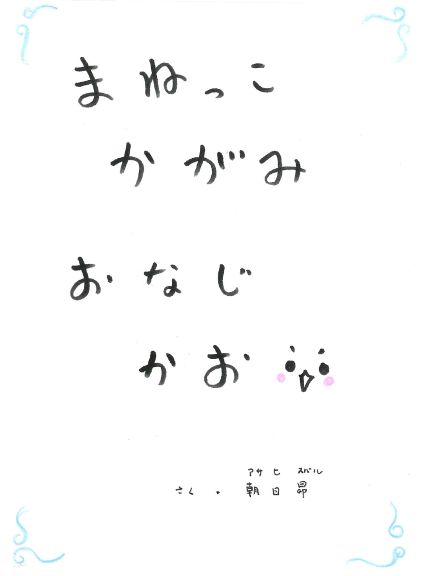 まねっこ
かがみ
おなじ
かお
アサヒ スバル
さく・朝日昴